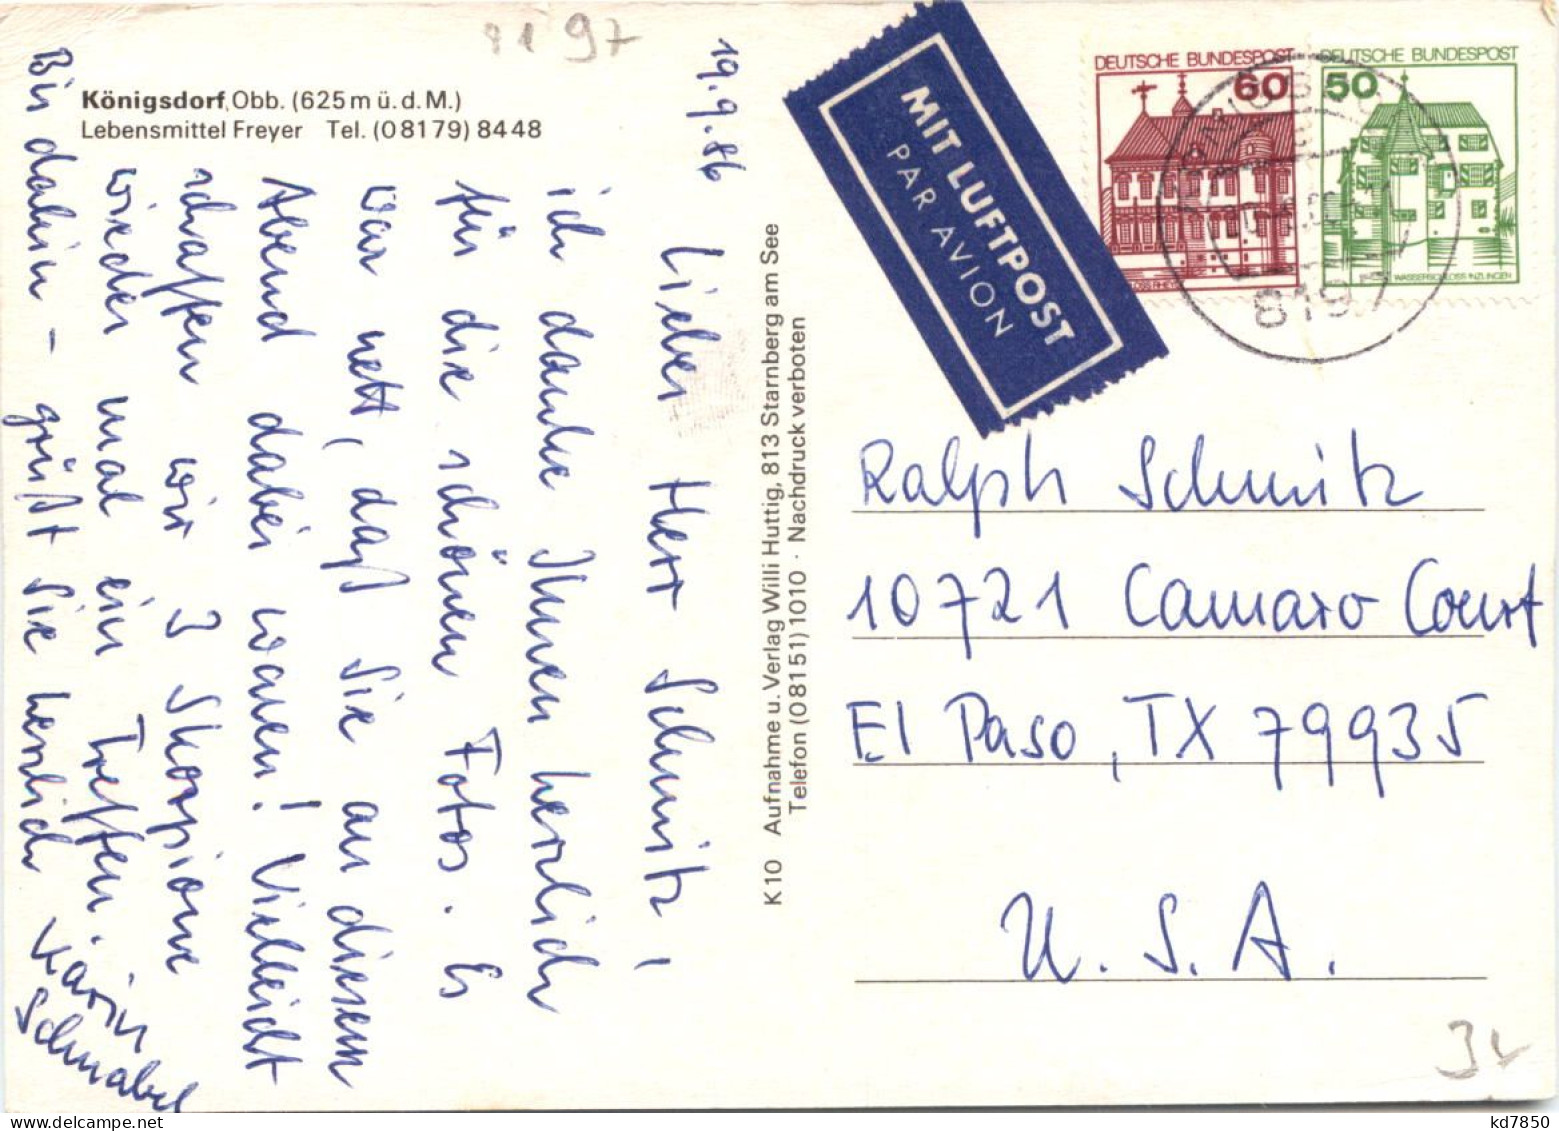 91 97
Königsdorf, Obb. (625 m ü. d. M.)
Lebensmittel Freyer Tel. (0 81 79) 84 48
19.9.86
Lieber Herr Schmitz,
ich danke Ihnen herzlich
für die schönen Fotos. Es
war nett, daß Sie an diesem
Abend dabei waren! Vielleicht
schaffen wir 3 Skorpione
wieder mal ein Treffen.
Bis dahin - grüßt Sie herzlich
Karin
Schnabel
K 10 Aufnahme u. Verlag Willi Huttig, 813 Starnberg am See
Telefon (0 81 51) 1010 · Nachdruck verboten
MIT LUFTPOST
PAR AVION
DEUTSCHE BUNDESPOST
60
DEUTSCHE BUNDESPOST
50
WASSERSCHLOSS INZLINGEN
819
Ralph Schmitz
10721 Camaro Court
El Paso, TX 79935
U. S. A.
kd7850